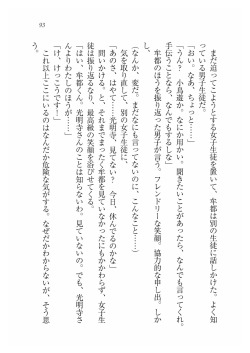 95
まだ迫ってこようとする女子生徒を置いて、牟都は別の生徒に話しかけた。よく知
っている男子生徒だ。
「おい。なあ、ちょっと……」
「うん？　小鳥遊か。なにか用かい。聞きたいことがあったら、なんでも言ってくれ。
手伝うことなら、なんでもするしな」
牟都のほうを振り返った男子が言う。フレンドリーな笑顔。協力的な申し出。しか
し、
（なんか、変だ。まだなにも言ってないのに、こんなこと……）
気を取り直して、別の女子生徒に、
「あの、はやて……光明寺、見てない？　今日、休んでるのかな」
問いかける。と、それまでまったく牟都を見ていなかったにもかかわらず、女子生
徒は振り返るなり、最高級の笑顔を浴びせてくる。
「はい、牟都くん。光明寺さんのことは知らないわ。見ていないの。でも、光明寺さ
んよりわたしのほうが……」
「け、けっこうです！」
これ以上ここにいるのはなんだか危険な気がする。なぜだかわからないが、そう思
う。